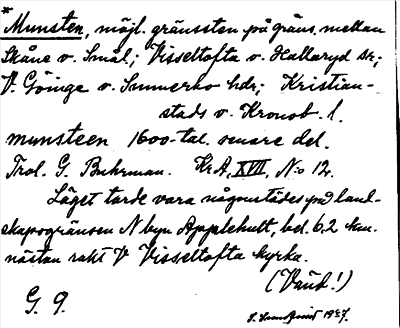 * Munsten, möjl. gränssten på gräns. mellan
Skåne o. Smål; Visseltofta o. Hallaryd sr;
V. Göinge o. Sunnerbo hdr; Kristian-
stads o. Kronob. l.
munsteen 1600-tal. senare del.
Trol. G. Buhrman. Kr.A, XVII, N:o 12.
Läget torde vara någonstädes på land-
skapsgränsen N byn Applehult, bel. 6,2 km.
nästan rakt V Visseltofta kyrka.
(Vaub!)
G. 9.
1927.